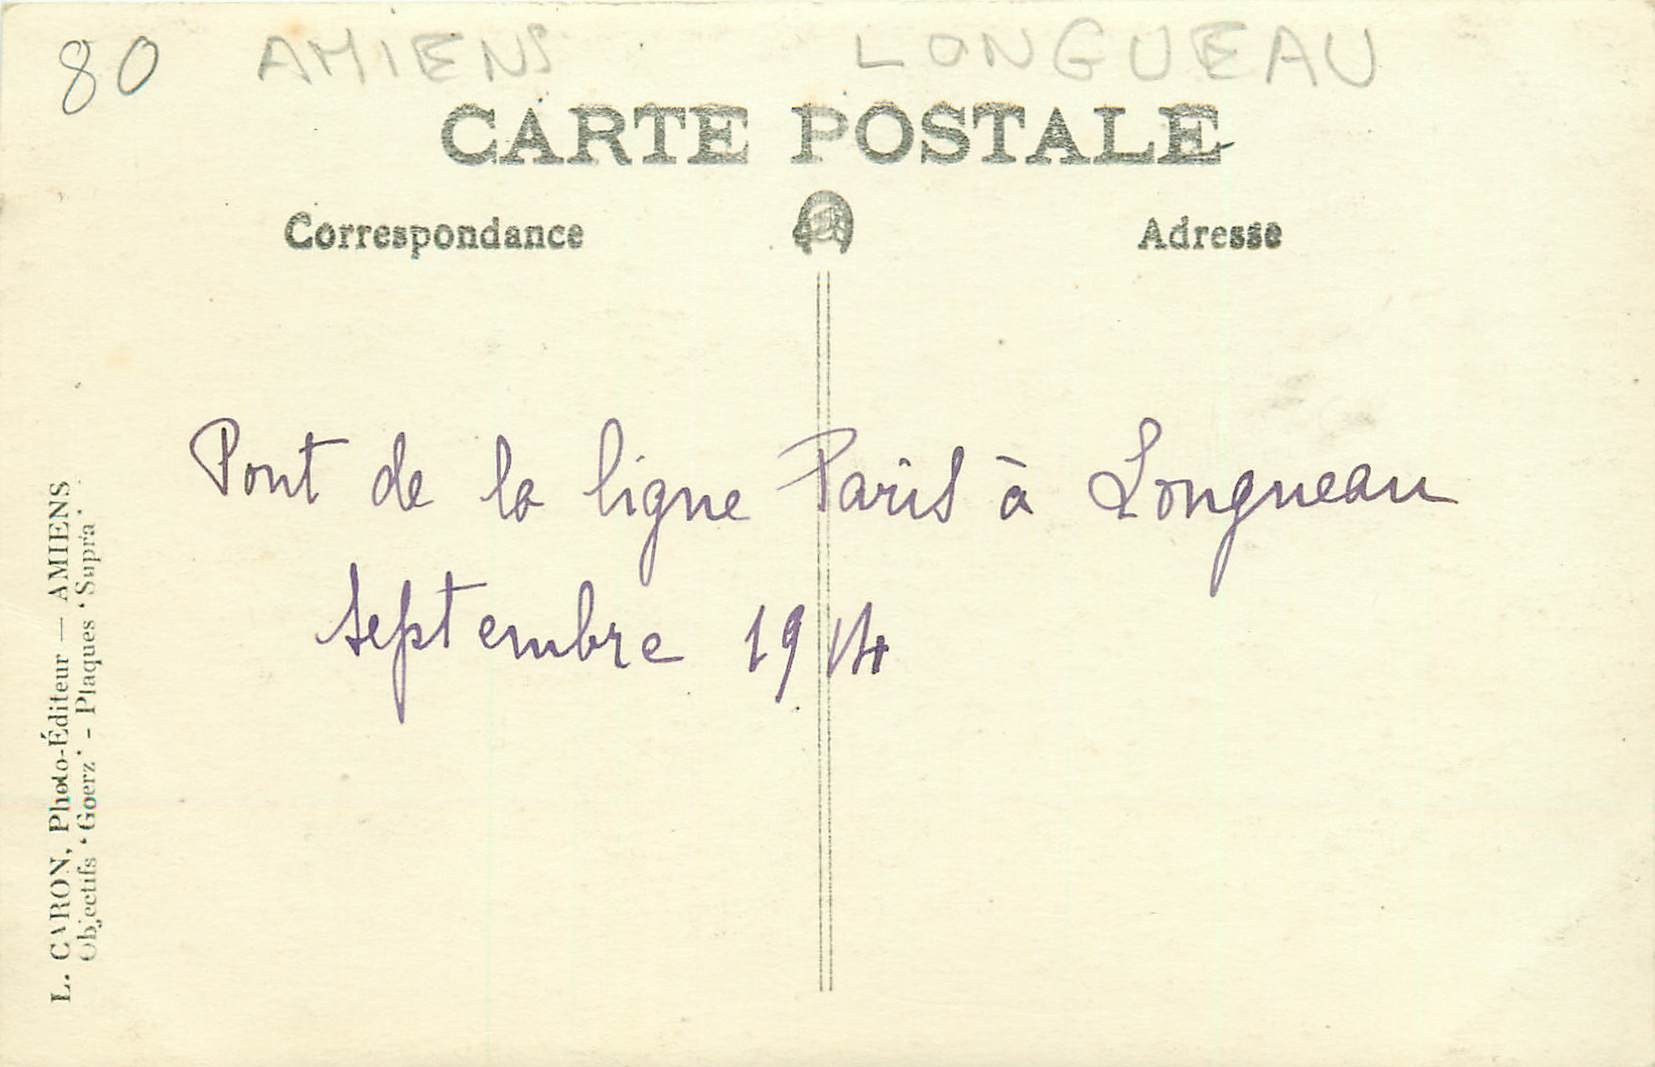 80 AMIENS LONGUEAU
CARTE POSTALE
Correspondance
Adresse
Pont de la ligne Paris à Longueau
septembre 1914
L. CARON, Photo-Éditeur — AMIENS
Objectifs "Goerz" - Plaques "Supra"